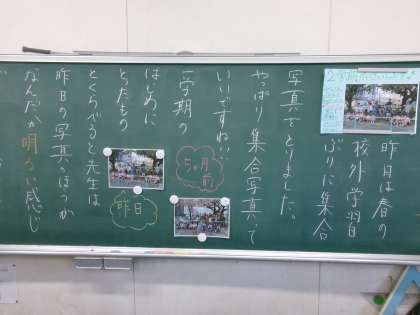 昨日は春の
校外学習
ぶりに集合
写真をとりました。
やっぱり集合写真って
いいですね…
一学期の
はじめに
とったもの
とくらべると先生は
昨日の写真のほうが
なんだか明るい感じ
5ヶ月
前
昨日